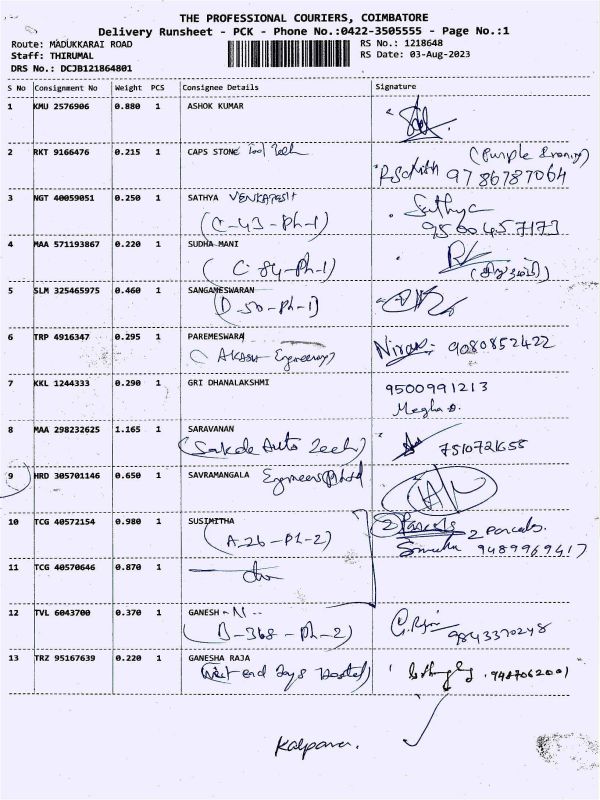 THE PROFESSIONAL COURIERS, COIMBATORE
Delivery Runsheet - PCK - Phone No.:0422-3505555 - Page No.:1
Route: MADUKKARAI ROAD RS No.: 1218648
Staff: THIRUMAL RS Date: 03-Aug-2023
DRS No.: DCJB121864801
S No Consignment No Weight PCS Consignee Details Signature
1 KMU 2576906 0.880 1 ASHOK KUMAR
2 RKT 9166476 0.215 1 CAPS STONE Tool Tech
9786787064
3 NGT 40059051 0.250 1 SATHYA VENKATESH Sathya
(C-43-Ph-1) 9560457173
4 MAA 571193867 0.220 1 SUDHA MANI
(C 84-Ph-1)
5 SLM 325465975 0.460 1 SANGAMESWARAN
(D-50-Ph-1)
6 TRP 4916347 0.295 1 PAREMESWARA
(Akash Engineering) 9080852422
7 KKL 1244333 0.290 1 GRI DHANALAKSHMI 9500991213
Megha
8 MAA 298232625 1.165 1 SARAVANAN
(Sakde Auto Tech) 7510721655
9 HRD 305701146 0.650 1 SAVRAMANGALA
10 TCG 40572154 0.980 1 SUSIMITHA 2 Parcels 2 parcels.
(A-26-Ph-2) 9489969617
11 TCG 40570646 0.870 1
12 TVL 6043700 0.370 1 GANESH - N - -
(D-368-Ph-2) 9843370248
13 TRZ 95167639 0.220 1 GANESHA RAJA
(West end Boys Hostel) 9487062001
Kalpana.